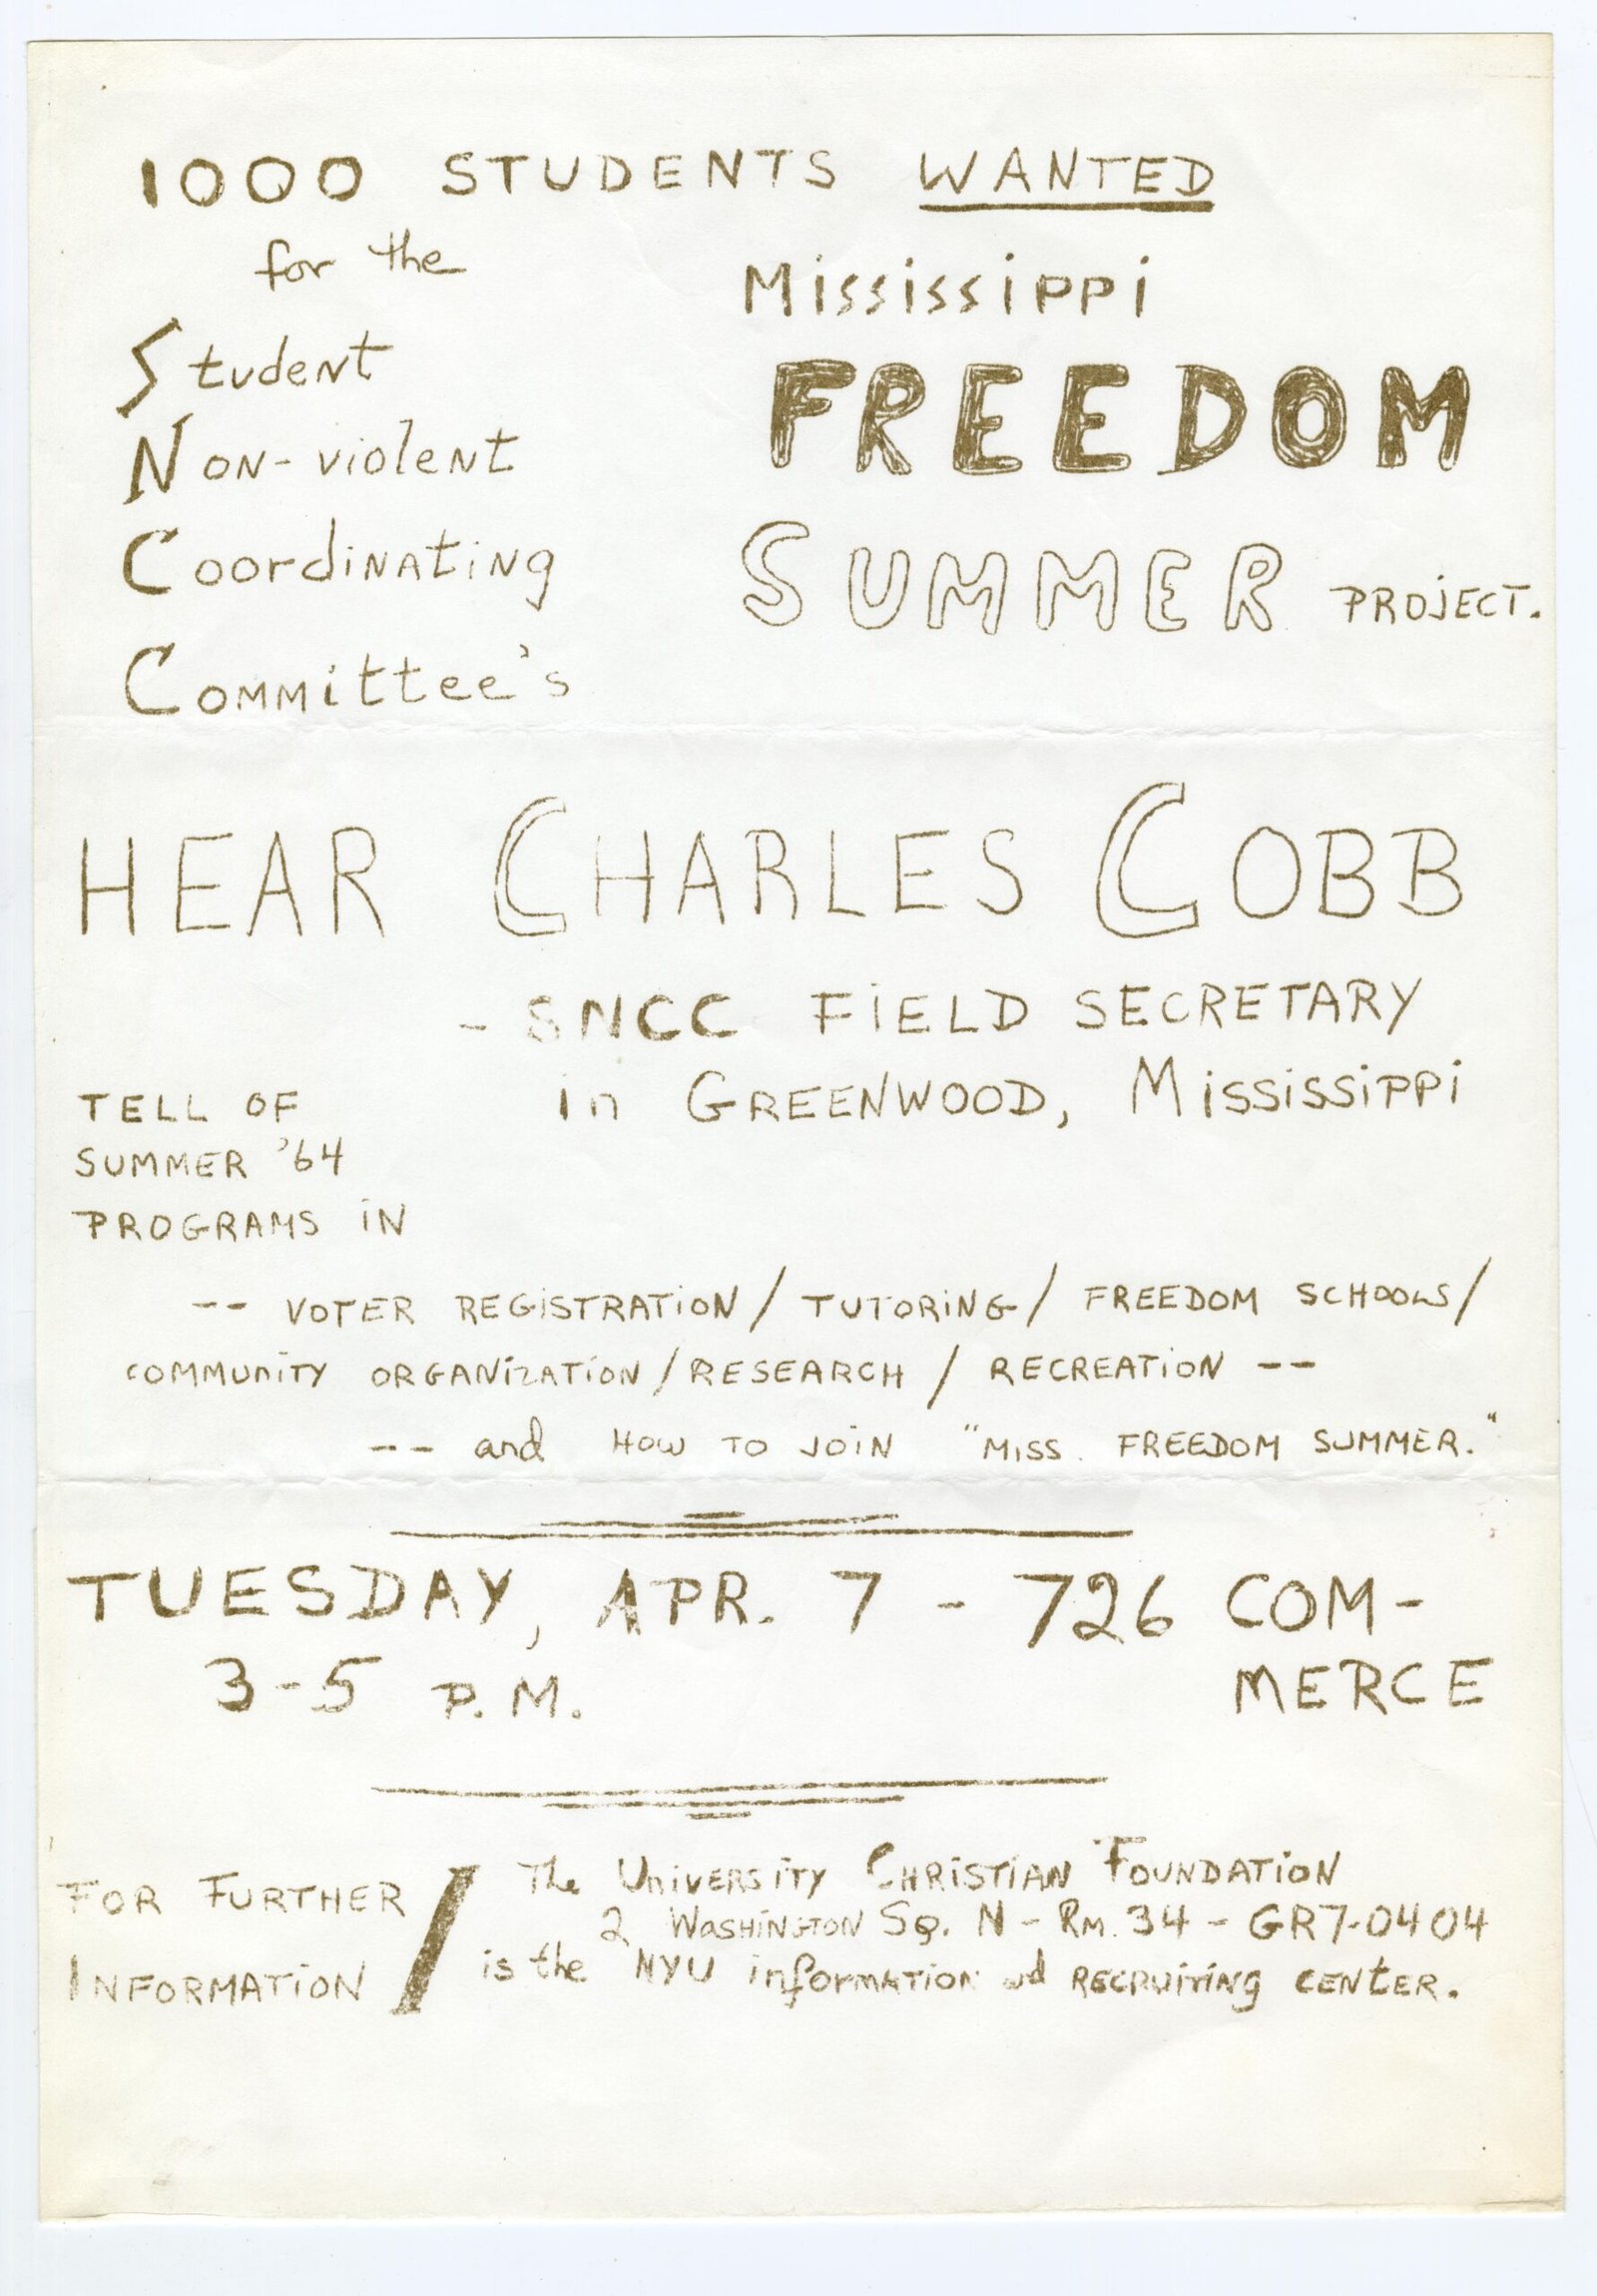 1000 STUDENTS WANTED
for the
Student
Non-violent
Coordinating
Committee's
Mississippi
FREEDOM
SUMMER PROJECT.
HEAR CHARLES COBB
- SNCC FIELD SECRETARY
in GREENWOOD, MISSISSIPPI
TELL OF
SUMMER '64
PROGRAMS IN
-- VOTER REGISTRATION / TUTORING / FREEDOM SCHOOLS /
COMMUNITY ORGANIZATION / RESEARCH / RECREATION --
-- and HOW TO JOIN "MISS. FREEDOM SUMMER."
TUESDAY, APR. 7 - 726 COM-
3-5 P.M. MERCE
FOR FURTHER
INFORMATION /
The UNIVERSITY CHRISTIAN FOUNDATION
2 WASHINGTON SQ. N - RM. 34 - GR7-0404
is the NYU information and RECRUITING CENTER.